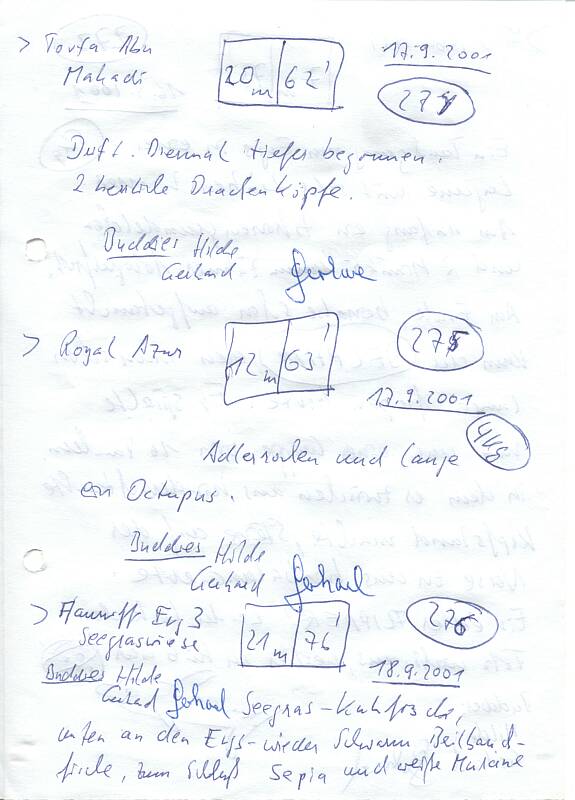 > Torfa Abu
Makadi
20 m 62'
17.9.2001
274
Duft. Diesmal tiefer begonnen.
2 herrliche Drachenköpfe.
Buddies Hilde
Gerhard
> Royal Azur
12 m 63'
275
17.9.2001
4kg
Adlerrochen und lange
ein Octopus.
Buddies Hilde
Gerhard Gerhard
> Hausriff Erg 3
Seegraswiese
21 m 76'
276
18.9.2001
Buddies Hilde
Gerhard Gerhard Seegras-Kuhfische,
unten an den Ergs wieder Schwarm Beilbauch-
fische, zum Schluß Sepia und weiße Muräne